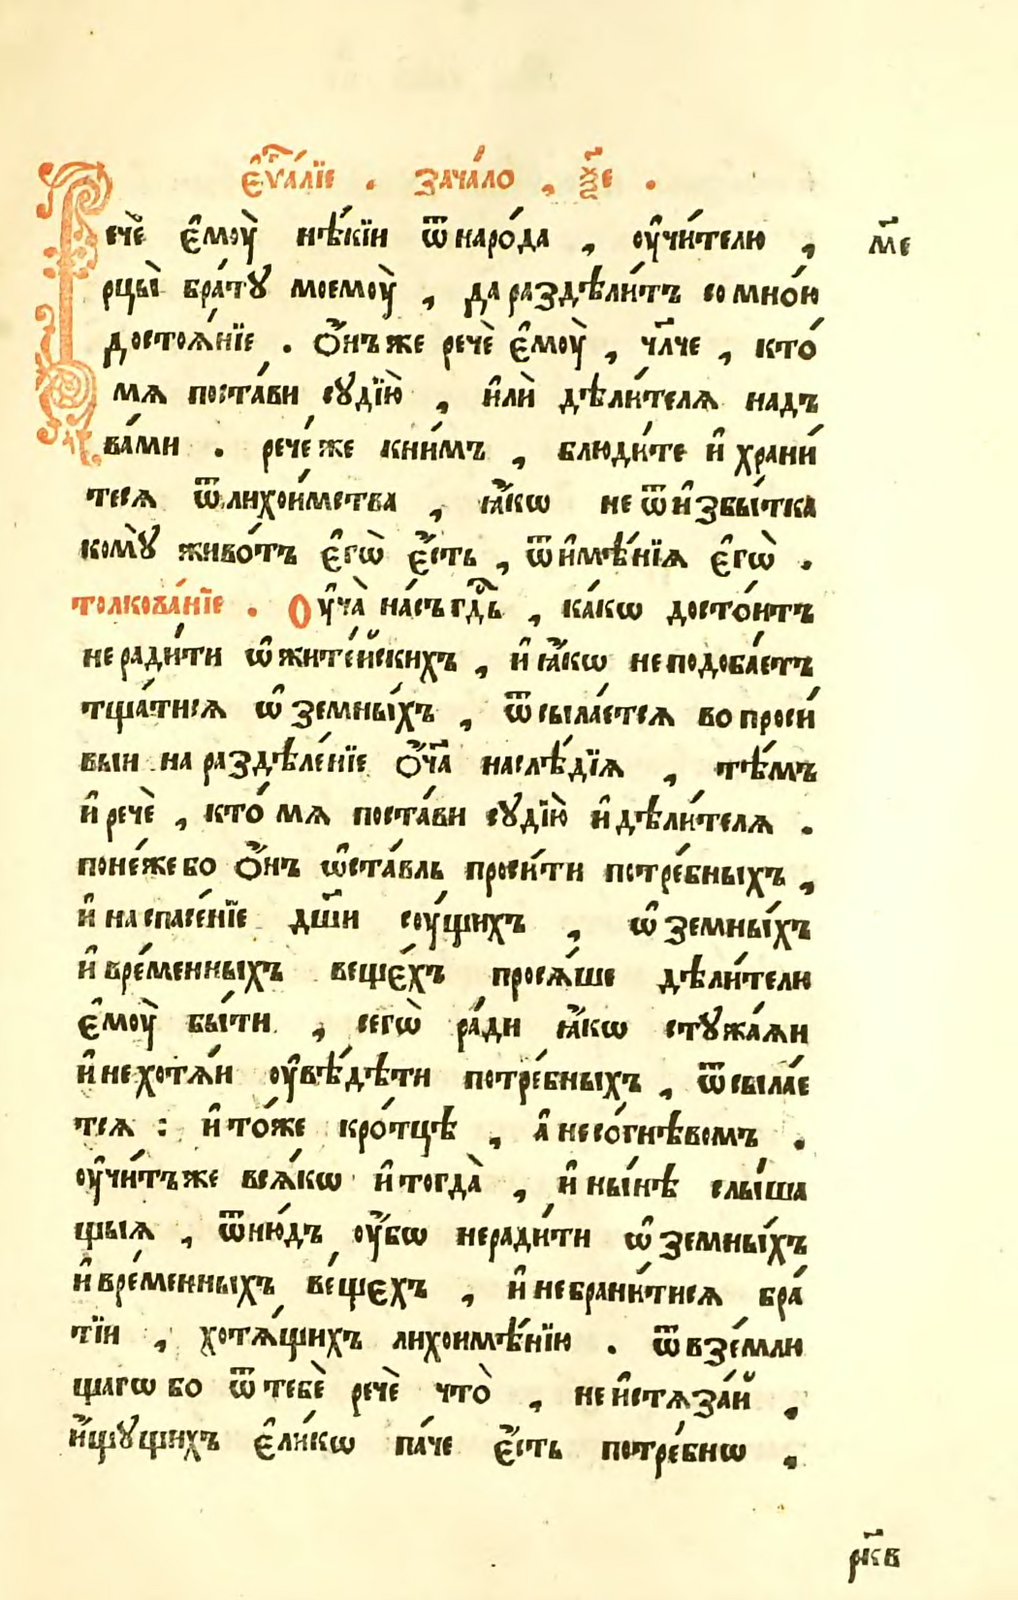 є҆ѵⷢ҇а́лїе . зача́ло , ѯ҃е .
Речѐ є҆моу̀ нѣ́кїи ѿ наро́да , оу҆чи́телю , м҃е
рцы̀ бра́тꙋ моемоу̀ , да раздѣли́тъ со мно́ю
достоѧ́нїе . ѻ҆́нъ же речѐ є҆моу̀ , чл҃че , кто́
мѧ поста́ви сꙋдїю̀ , и҆лѝ дѣли́телѧ надъ
ва́ми . рече́ же кни́мъ , блюди́те и҆ храни́
тесѧ ѿ лихои́мства , ꙗ҆́кѡ не ѿ и҆збы́тка
комꙋ̀ живо́тъ є҆гѡ̀ є҆́сть , ѿ и҆мѣ́нїѧ є҆гѡ̀ .
толкова́нїе . Оу҆ча̀ на́съ гдⷭ҇ь , ка́кѡ досто́итъ
не ради́ти ѡ҆ жите́йскихъ , и҆ ꙗ҆́кѡ не подоба́етъ
тща́тисѧ ѡ҆ земны́хъ , ѿсыла́етсѧ во проси́
выи на раздѣле́нїе ѻ҆́ч҃а наслѣ́дїѧ , тѣ́мъ
и҆ речѐ , кто́ мѧ поста́ви сꙋдїю̀ и҆ дѣли́телѧ .
поне́же бо ѻ҆́нъ ѡ҆ста́вль проси́ти потре́бныхъ ,
и҆ на спасе́нїе дш҃и соу́щихъ , ѡ҆ земны́хъ
и҆ вре́менныхъ веще́хъ просѧ́ше дѣли́телю
є҆моу̀ бы́ти , сегѡ̀ ра́ди ꙗ҆́кѡ стꙋжа́ѧи
и҆ не хотѧ́и оу҆вѣ́дѣти потре́бныхъ , ѿсыла́е
тсѧ : и҆ то́же кро́тцѣ , а҆ не со́гнѣвомъ .
оу҆чи́тъ же всѧ́кѡ и҆ тогда̀ , и҆ ны́нѣ слы́ша
щыѧ , ѿню́дъ оу҆́бѡ неради́ти ѡ҆ земны́хъ
и҆ вре́менныхъ ве́щехъ , и҆ не брани́тисѧ бра́
тїи , хотѧ́щихъ лихоимѣ́нїю . ѿвзе́млю
щагѡ бо ѿ тебѐ речѐ что̀ , не и҆стѧза́й ,
и҆́щꙋщихъ є҆ли́кѡ па́че є҆́сть потре́бнѡ ,
рк҃в